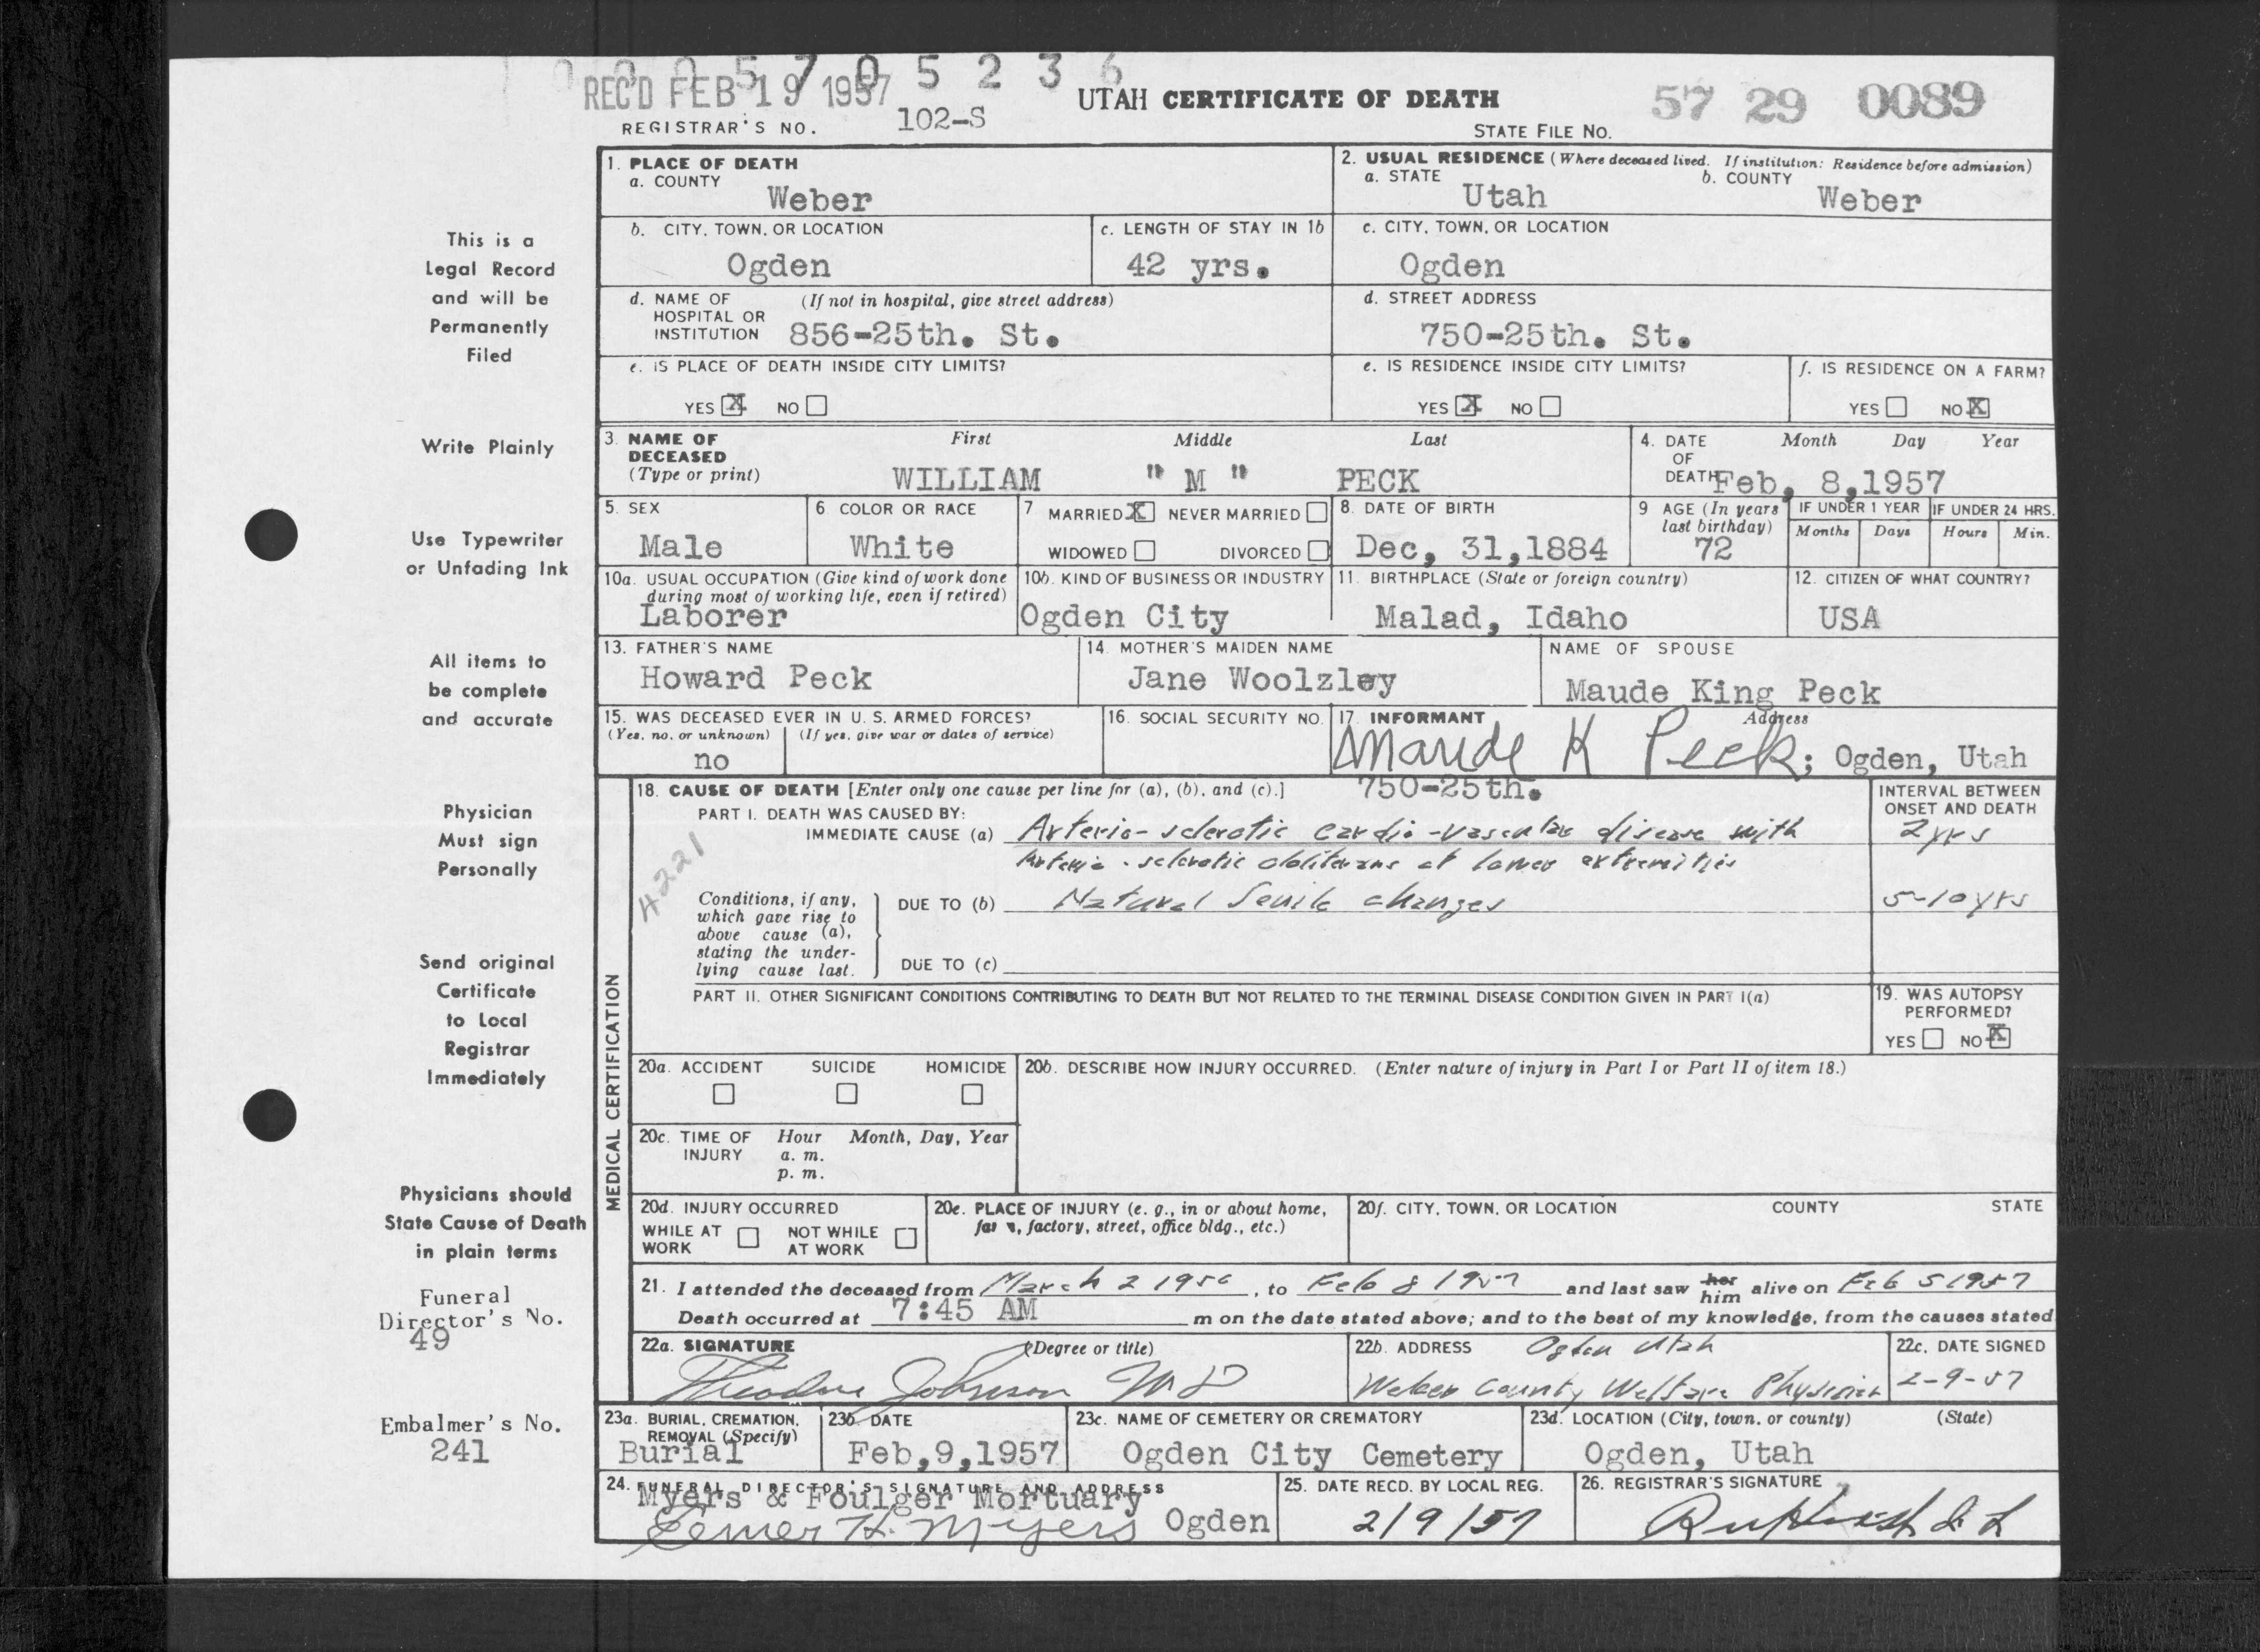 0 0 0 5 7 0 5 2 3 6
REC'D FEB 19 1957
UTAH CERTIFICATE OF DEATH
57 29 0089
REGISTRAR'S NO. 102-S
STATE FILE NO.
This is a
Legal Record
and will be
Permanently
Filed
Write Plainly
Use Typewriter
or Unfading Ink
All items to
be complete
and accurate
Physician
Must sign
Personally
Send original
Certificate
to Local
Registrar
Immediately
Physicians should
State Cause of Death
in plain terms
Funeral
Director's No.
49
Embalmer's No.
241
1. PLACE OF DEATH
a. COUNTY
Weber
2. USUAL RESIDENCE (Where deceased lived. If institution: Residence before admission)
a. STATE b. COUNTY
Utah Weber
b. CITY, TOWN, OR LOCATION
Ogden
c. LENGTH OF STAY IN 1b
42 yrs.
c. CITY, TOWN, OR LOCATION
Ogden
d. NAME OF (If not in hospital, give street address)
HOSPITAL OR
INSTITUTION 856-25th. St.
d. STREET ADDRESS
750-25th. St.
e. IS PLACE OF DEATH INSIDE CITY LIMITS?
YES X NO
e. IS RESIDENCE INSIDE CITY LIMITS?
YES X NO
f. IS RESIDENCE ON A FARM?
YES NO X
3. NAME OF First Middle Last
DECEASED
(Type or print) WILLIAM "M" PECK
4. DATE Month Day Year
OF
DEATH Feb, 8,1957
5. SEX
Male
6 COLOR OR RACE
White
7 MARRIED X NEVER MARRIED
WIDOWED DIVORCED
8. DATE OF BIRTH
Dec, 31,1884
9 AGE (In years
last birthday)
72
IF UNDER 1 YEAR IF UNDER 24 HRS.
Months Days Hours Min.
10a. USUAL OCCUPATION (Give kind of work done
during most of working life, even if retired)
Laborer
10b. KIND OF BUSINESS OR INDUSTRY
Ogden City
11. BIRTHPLACE (State or foreign country)
Malad, Idaho
12. CITIZEN OF WHAT COUNTRY?
USA
13. FATHER'S NAME
Howard Peck
14. MOTHER'S MAIDEN NAME
Jane Woolzley
NAME OF SPOUSE
Maude King Peck
15. WAS DECEASED EVER IN U. S. ARMED FORCES?
(Yes, no, or unknown) (If yes, give war or dates of service)
no
16. SOCIAL SECURITY NO.
17. INFORMANT Address
Maude K Peck; Ogden, Utah
750-25th.
MEDICAL CERTIFICATION
18. CAUSE OF DEATH [Enter only one cause per line for (a), (b), and (c).]
INTERVAL BETWEEN
ONSET AND DEATH
PART I. DEATH WAS CAUSED BY:
IMMEDIATE CAUSE (a) Arterio-sclerotic cardio-vascular disease with 2 yrs
Arterio-sclerotic obliterans at lower extremities
4221
Conditions, if any,
which gave rise to
above cause (a),
stating the under-
lying cause last.
DUE TO (b) Natural Senile changes 5-10 yrs
DUE TO (c)
PART II. OTHER SIGNIFICANT CONDITIONS CONTRIBUTING TO DEATH BUT NOT RELATED TO THE TERMINAL DISEASE CONDITION GIVEN IN PART I(a)
19. WAS AUTOPSY
PERFORMED?
YES NO X
20a. ACCIDENT SUICIDE HOMICIDE
20b. DESCRIBE HOW INJURY OCCURRED. (Enter nature of injury in Part I or Part II of item 18.)
20c. TIME OF Hour Month, Day, Year
INJURY a. m.
p. m.
20d. INJURY OCCURRED
WHILE AT NOT WHILE
WORK AT WORK
20e. PLACE OF INJURY (e. g., in or about home,
farm, factory, street, office bldg., etc.)
20f. CITY, TOWN, OR LOCATION COUNTY STATE
21. I attended the deceased from March 2 1956, to Feb 8 1957 and last saw her him alive on Feb 5 1957
Death occurred at 7:45 AM m on the date stated above; and to the best of my knowledge, from the causes stated
22a. SIGNATURE (Degree or title)
Theodore Johnson MD
22b. ADDRESS Ogden Utah
Weber County Welfare Physician
22c. DATE SIGNED
2-9-57
23a. BURIAL, CREMATION,
REMOVAL (Specify)
Burial
23b. DATE
Feb,9,1957
23c. NAME OF CEMETERY OR CREMATORY
Ogden City Cemetery
23d. LOCATION (City, town, or county) (State)
Ogden, Utah
24. FUNERAL DIRECTOR'S SIGNATURE AND ADDRESS
Myers & Foulger Mortuary
Elmer H. Myers Ogden
25. DATE RECD. BY LOCAL REG.
2/9/57
26. REGISTRAR'S SIGNATURE